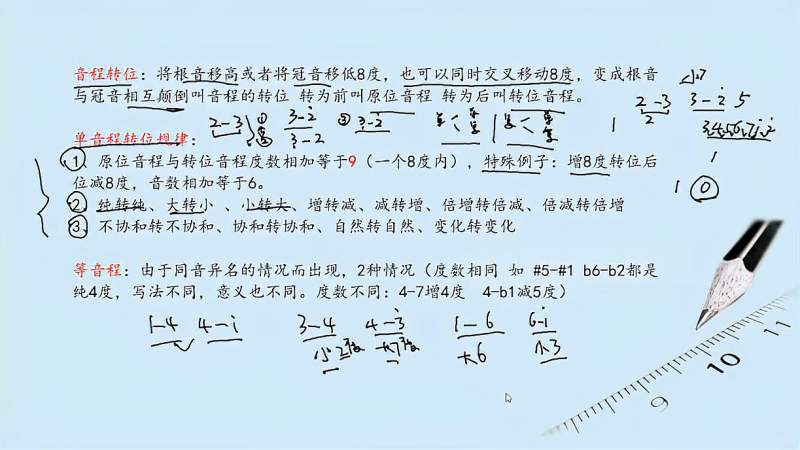 音程转位：将根音移高或者将冠音移低8度，也可以同时交叉移动8度，变成根音
与冠音相互颠倒叫音程的转位 转为前叫原位音程 转为后叫转位音程。
小7
2-3 3-2 5
2
1
单音程转位规律：
2-3 ① 3-2 ② 3-2
② 3-2
1. 原位音程与转位音程度数相加等于9（一个8度内），特殊例子：增8度转位后
位减8度，音数相加等于6。
1
1 0
2. 纯转纯、大转小 、小转大、增转减、减转增、倍增转倍减、倍减转倍增
3. 不协和转不协和、协和转协和、自然转自然、变化转变化
等音程：由于同音异名的情况而出现，2种情况（度数相同 如 #5-#1 b6-b2都是
纯4度，写法不同，意义也不同。度数不同：4-7增4度 4-b1减5度）
1-4 4-i 3-4 4-3 1-6 6-i
小2度 大7度 大6 小3
9 10 11